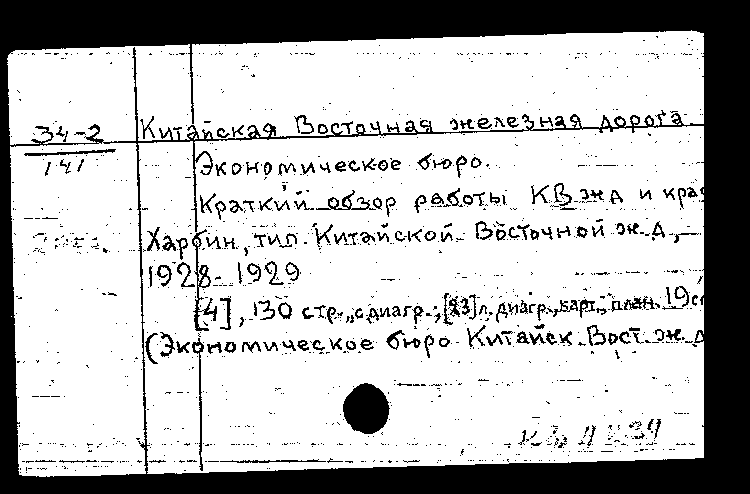 34-2
141
Китайская Восточная железная дорога.
Экономическое бюро.
Краткий обзор работы КВжд и кра
Харбин, тип. Китайской Восточной ж.д.,
1928-1929
[4], 130 стр., с диагр.; [23] л. диагр., карт., план. 19 с
(Экономическое бюро Китайск. Вост. ж. д